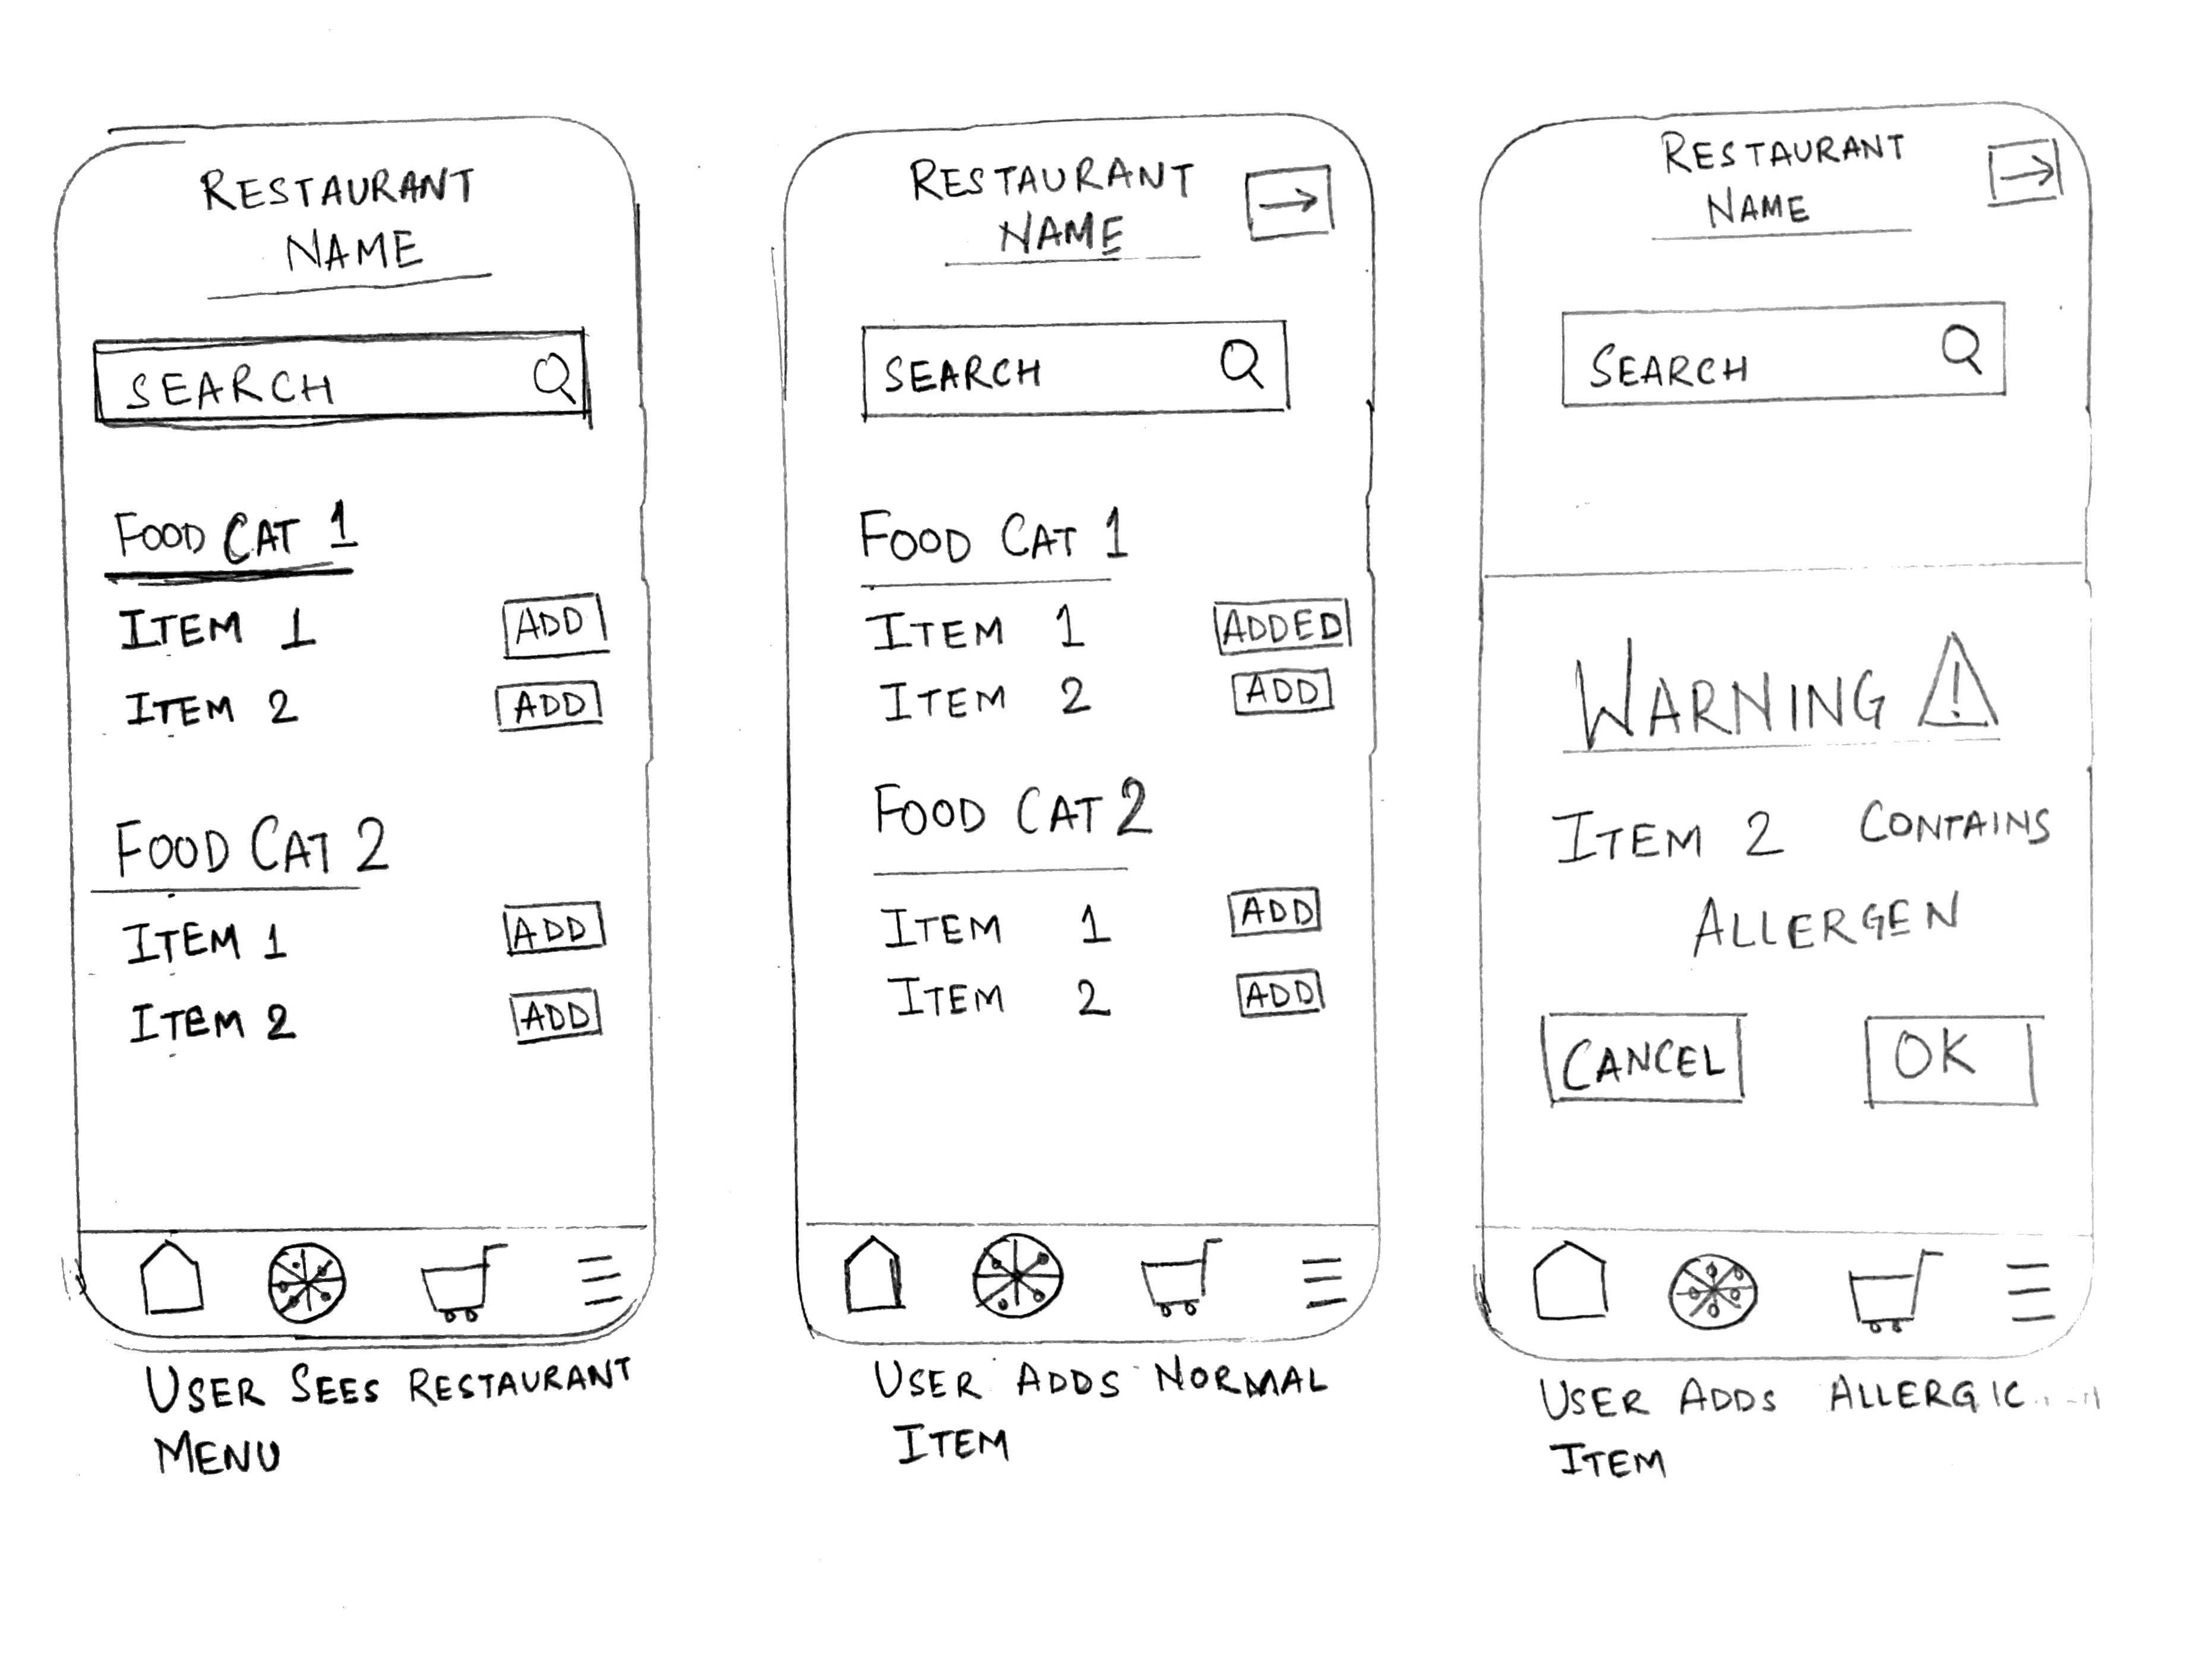 RESTAURANT
NAME
SEARCH
FOOD CAT 1
ITEM 1 ADD
ITEM 2 ADD
FOOD CAT 2
ITEM 1 ADD
ITEM 2 ADD
USER SEES RESTAURANT
MENU
RESTAURANT
NAME
SEARCH
FOOD CAT 1
ITEM 1 ADDED
ITEM 2 ADD
FOOD CAT 2
ITEM 1 ADD
ITEM 2 ADD
USER ADDS NORMAL
ITEM
RESTAURANT
NAME
SEARCH
WARNING
ITEM 2 CONTAINS
ALLERGEN
CANCEL OK
USER ADDS ALLERGIC
ITEM